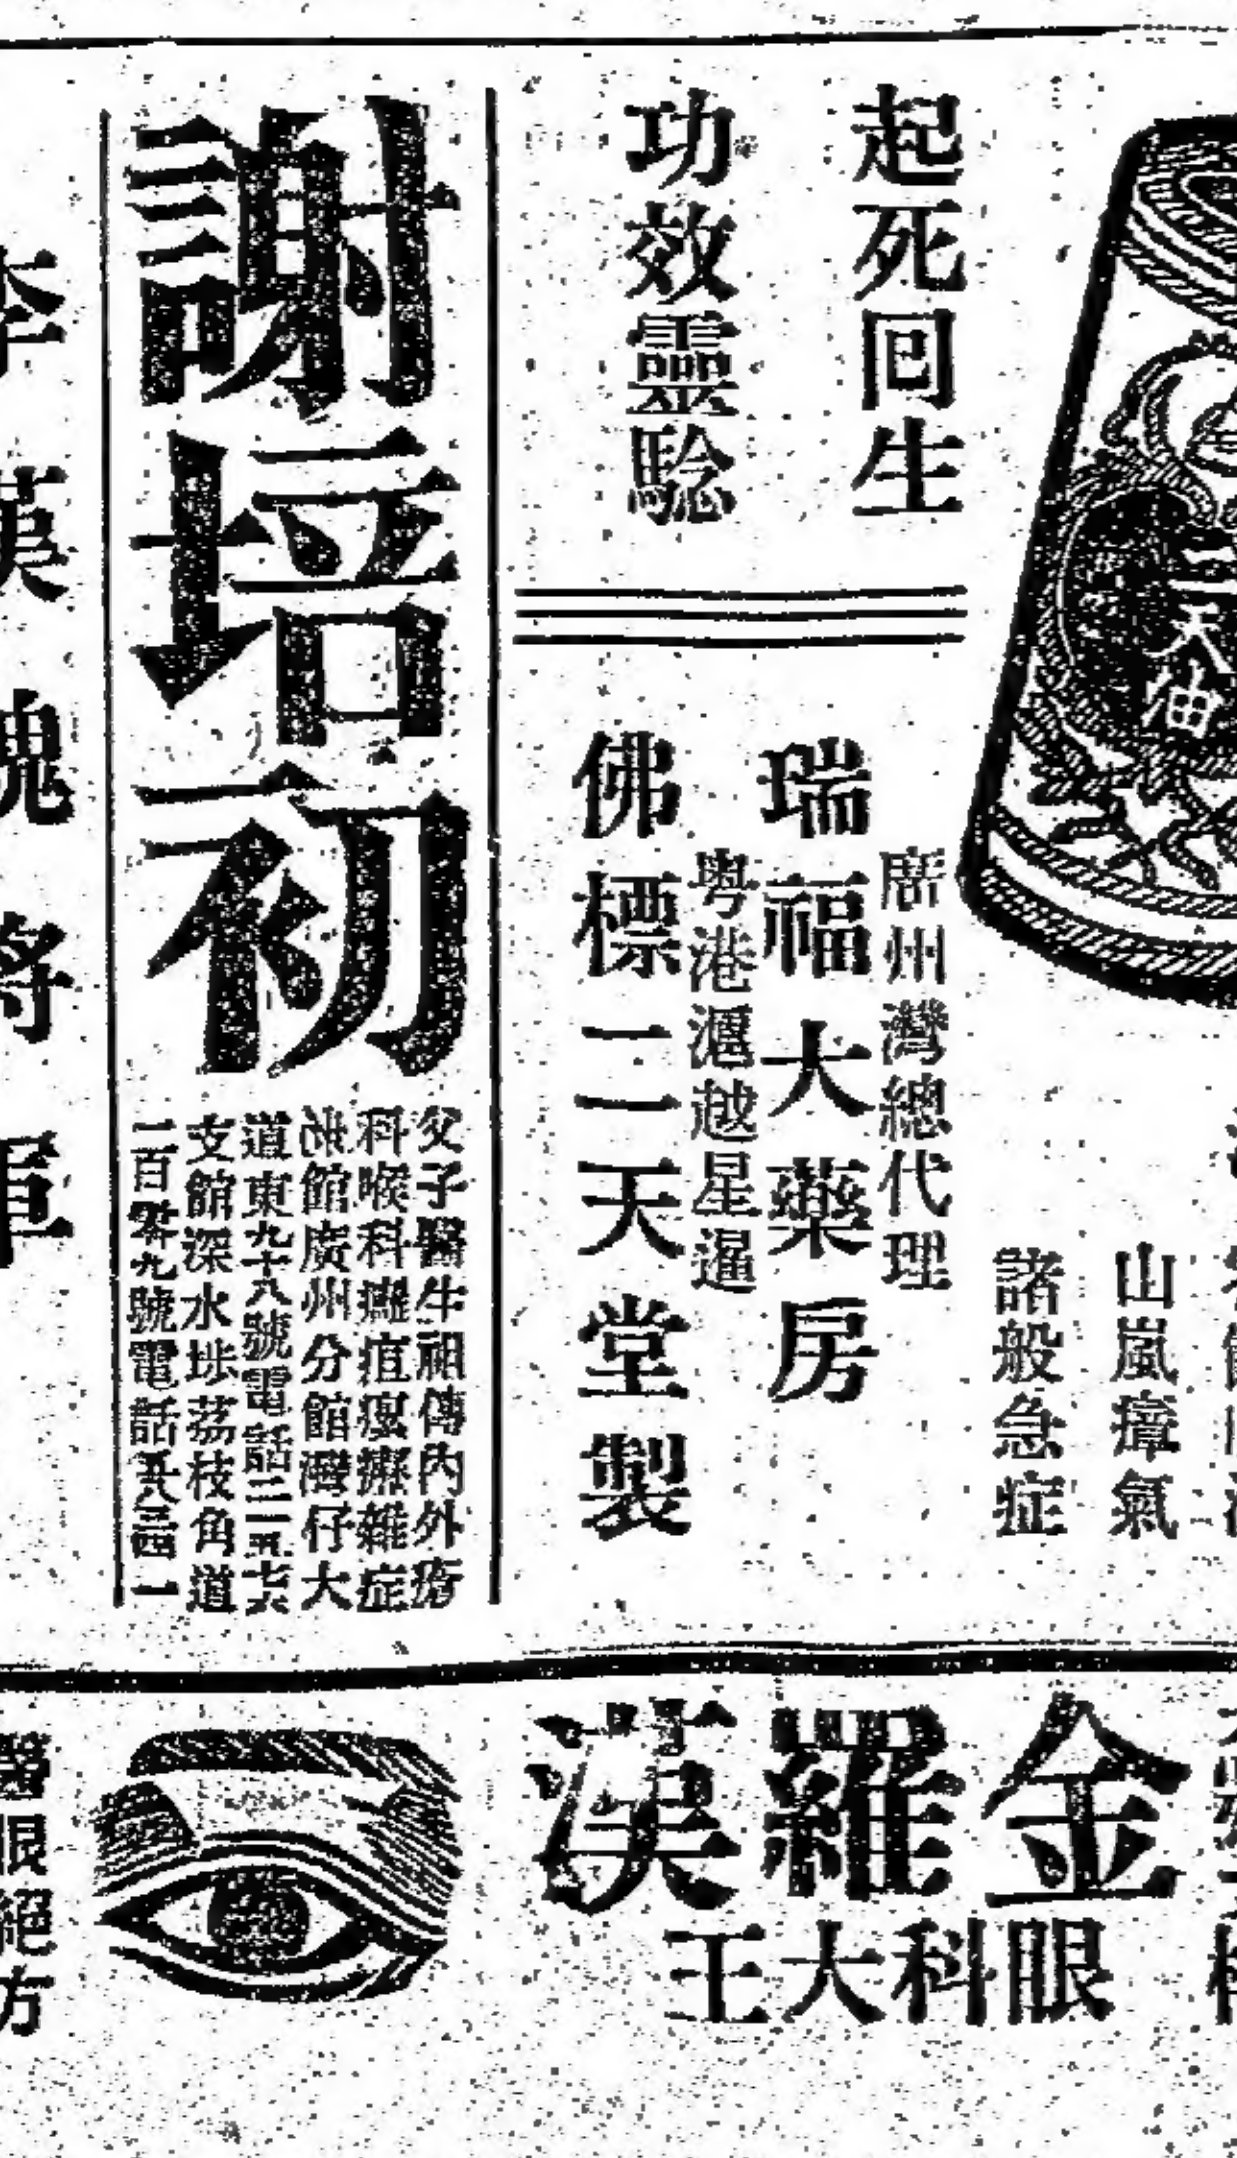 二天油
山嵐瘴氣
諸般急症
起死回生
功效靈騐
廣州灣總代理
瑞福大藥房
粤港滬越星暹
佛標二天堂製
謝培初
父子醫生祖傳內外瘡
科喉科癰疽瘰癧雜症
館廣州分館灣仔大
道東九十八號電話二一五六六
支館深水埗荔枝角道
二百零九號電話五三四一
李漢魂將軍
金羅漢
眼科大王
醫眼絕方